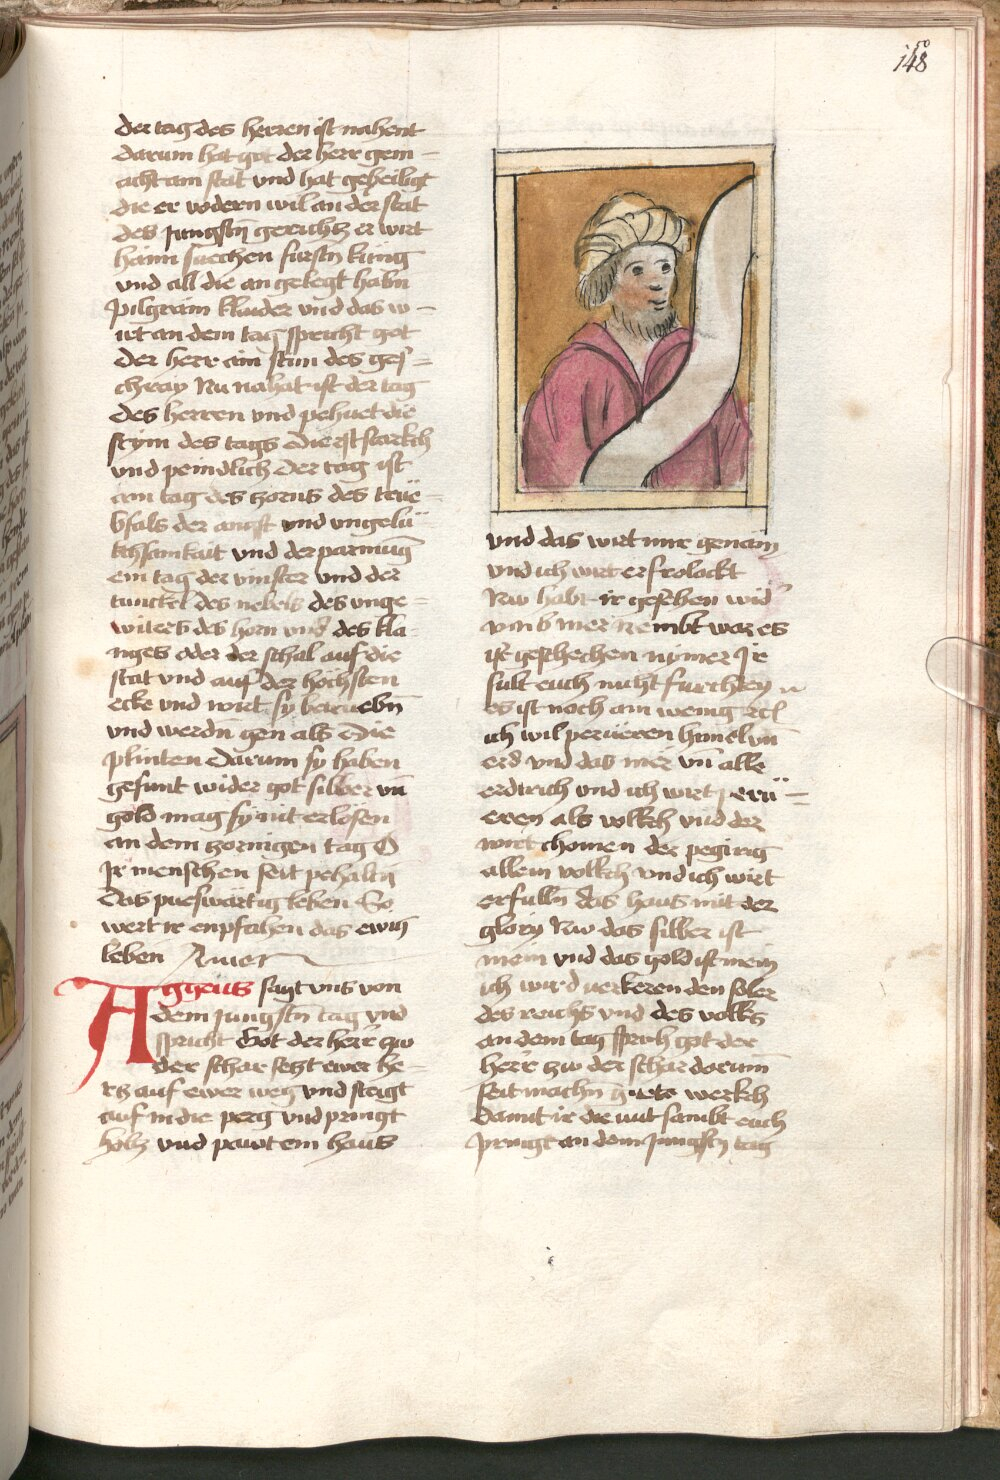 148
der tag des herren ist nahent
darum hat got der herr gem=
acht ain stat vnd hat geheiligt
die er vodern wil an der stat
des Jungstn gerichtz er wirt
haim suechen furstn kunig
vnd all die an gelegt habn
pilgram klaider vnd das w=
irt an dem tag spricht got
der herr ain stim des ges=
chray Nu nahat ist der tag
des herren vnd pehuet die
stym des tags Die ist starkch
vnd peindlich Der tag ist
ain tag des zorns des trüe=
bsals der angst vnd vngelü=
kchsamkait vnd der parmug
ein tag der vinster vnd der
tunckel des nebels des vnge=
witers des horn vnd des kla=
nges oder der schal auf die
stat vnd auf der höchsten
ecke vnd wirt sy betruebn
vnd werdn gen als Die
plinten Darum sy haben
gesunt wider got silber vn
gold mag sy nit erlösen
an dem zornigen tag O
Ir menschen seit pehaltig
Das pueswärtig leben So
wert ir enpfahen das ewig
leben Amer
Aggeus sagt vns von
dem Jungstn tag vnd
spricht Got der herr zw
der schar setzt ewer he=
rtz auf ewer weg vnd steigt
auf in die perg vnd pringt
holtz vnd pawt ein haus
vnd das wirt mir genam
vnd ich wirt erfrolockt
Nw habt ir gesehen wid
vmb mer nembt war es
ist geschechen nymer Ir
sult euch nicht furchten
es ist noch ain wenig
ich wil perüeren himel vn
erd vnd das mer vn alle
erdtrich vnd ich wirt perü=
eren als volkch vnd der
wirt chomen der pegirig
allem volkch vnd ich wirt
erfulln das haus mit der
glory Nw das silber ist
mein vnd das gold ist mein
ich wird verkeren den
des reichs vnd des volks
an dem tag sprich got der
herr zw der schar darum
seit machn guete werkch
Damit ir die mit sambt euch
pringt an dem Jungstn tag